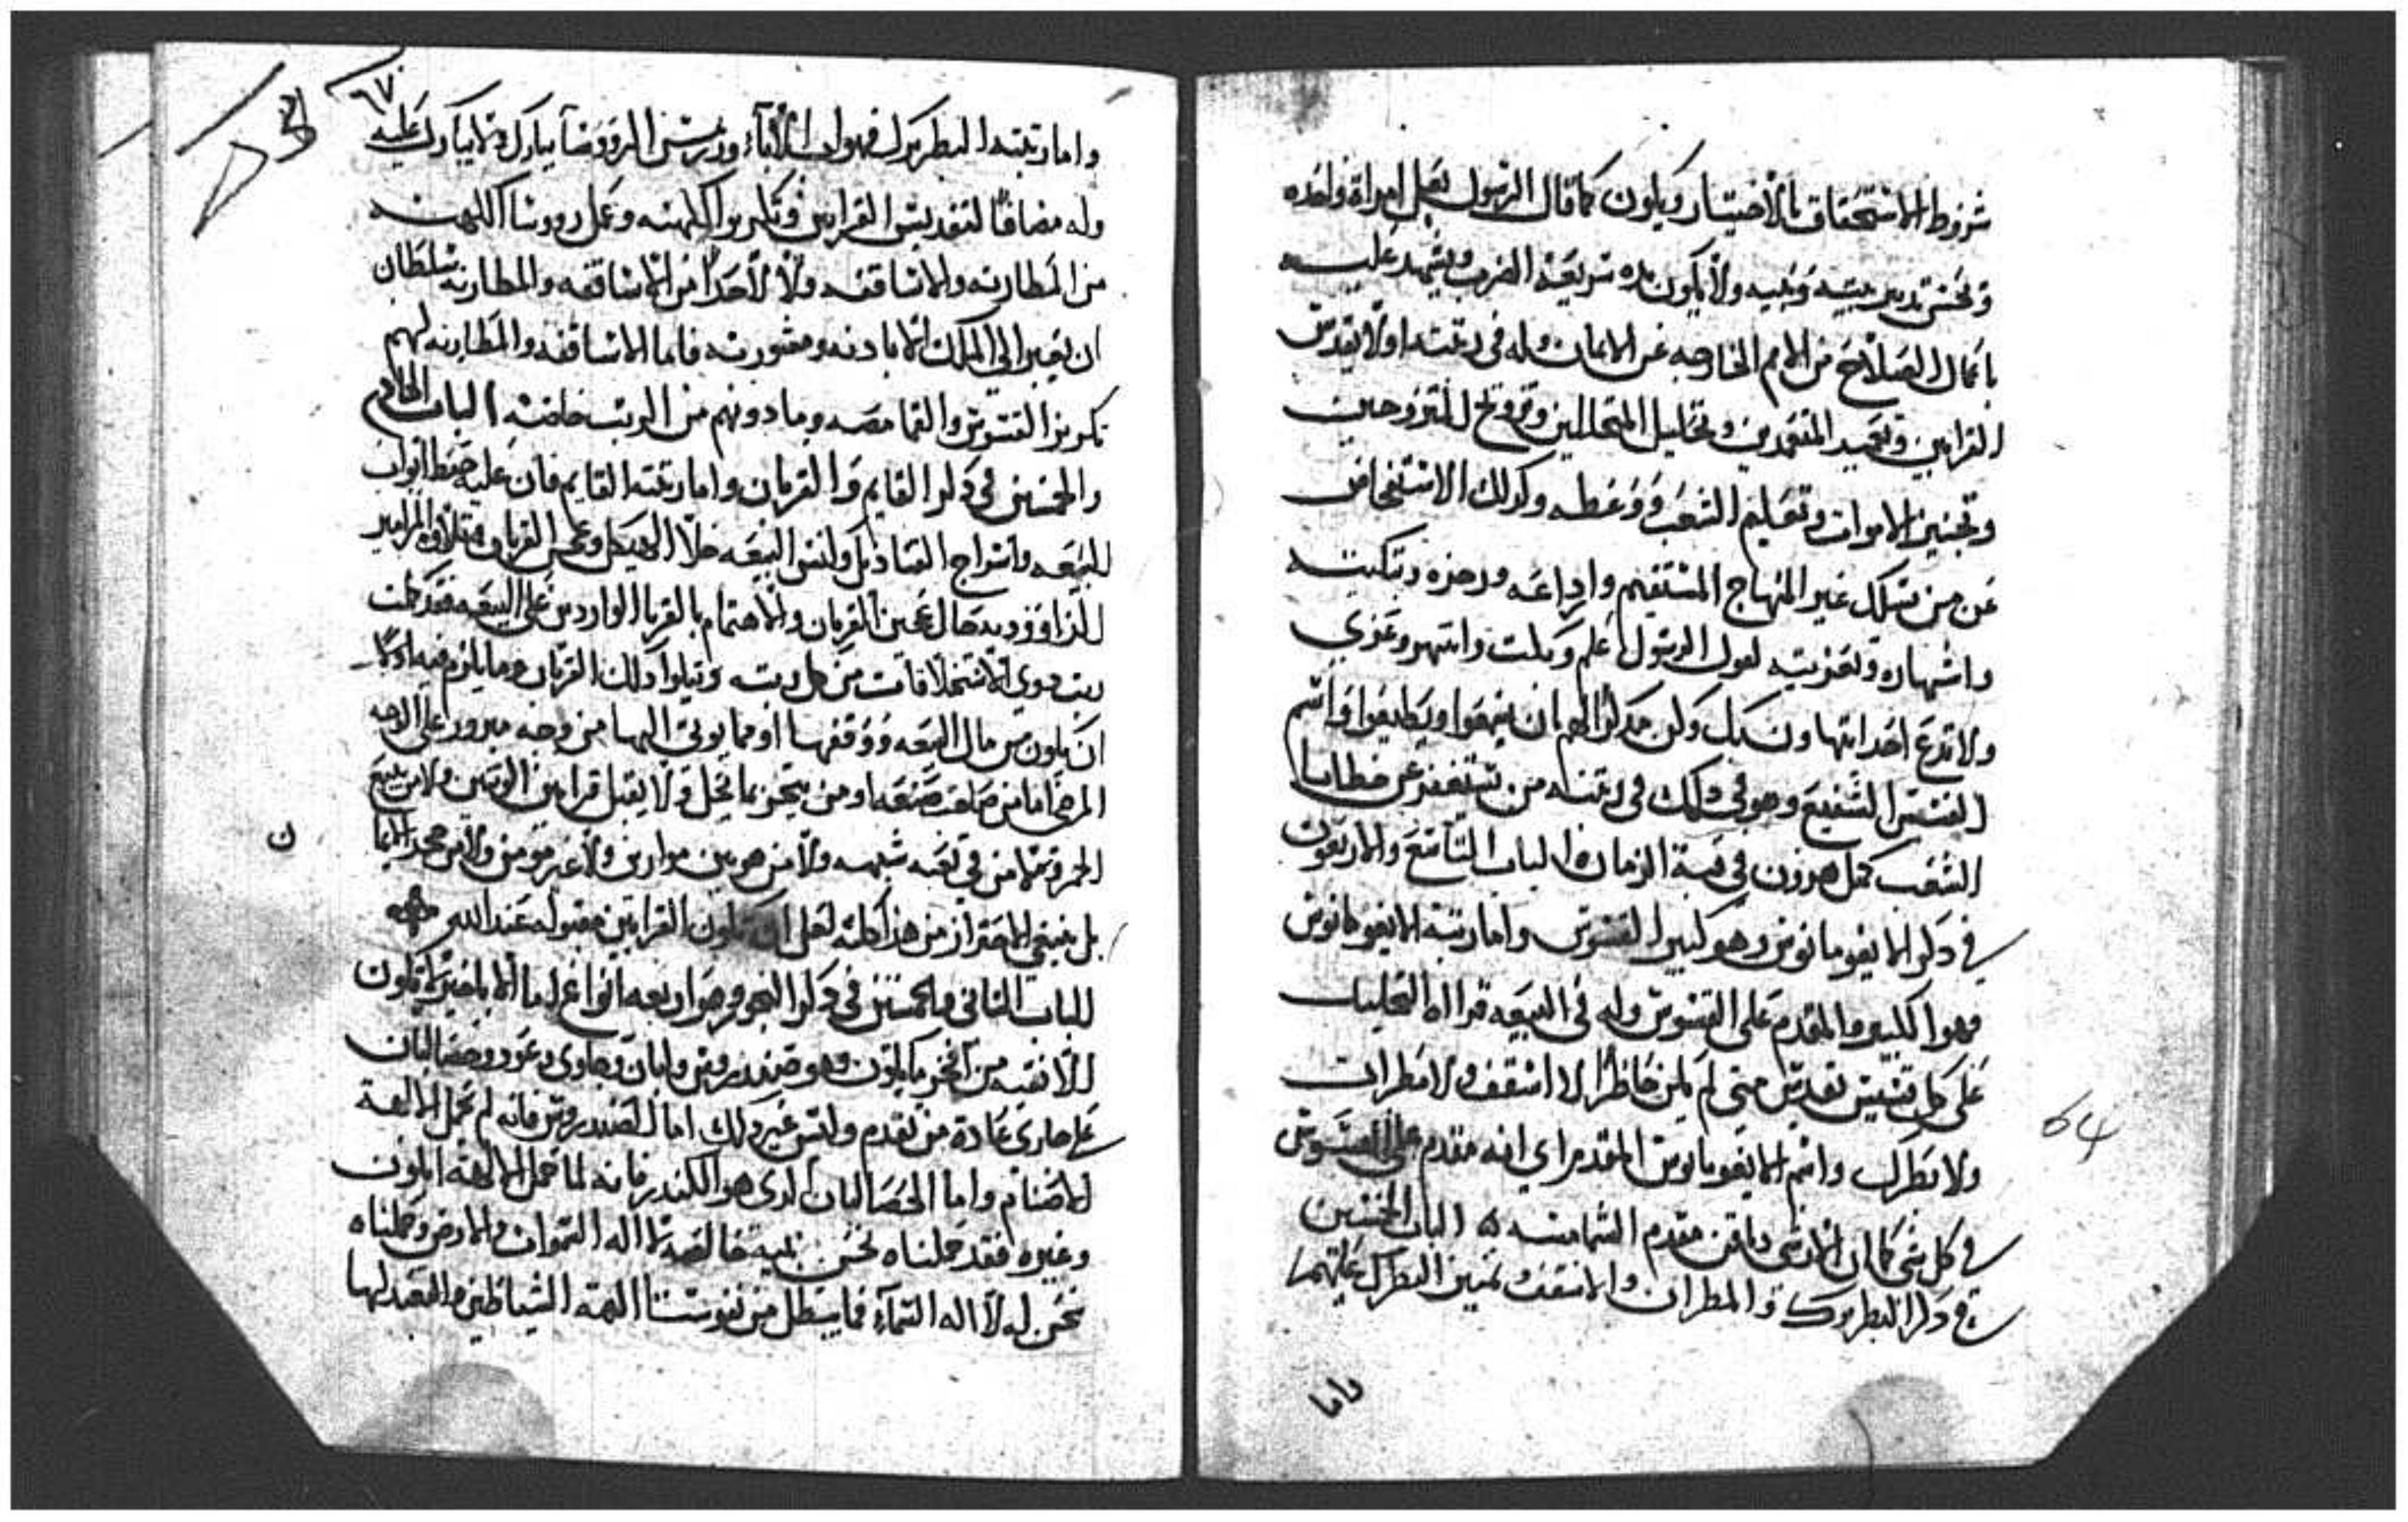 شروط الاستحقاق بالاختيار ويكون كما قال الرسول بعل امراة واحده
وحسن تدبير بيته وبنيه ولا يكون شريعة الضرب ويشهد عليه
باعمال الصلاح من الامم الخارجه عن الايمان وله في رتبته اولا يقدس
القرابين وتعميد المتعمدين وتحليل المتحاللين وتزويج المتزوجين
وتجنيز الاموات وتعليم الشعب ووعظه وكدلك الاستفحاض
عن من يسلك غير المنهاج المستقيم وارداعه وزجره وتبكيته
واشهاره وتعزيته لقول الرسول علم وبكت وانتهر وعزي
ولا تدع احدا يتهاون بك ولكن مدكرا لهم ان يسمعوا ويطيعوا واسم
القسيس الشفيع وهو في دلك في رتبته من يستغفر عن خطايا
الشعب كمثل هرون في قبة الزمان الباب التاسع والاربعون
في دكر الايغومانوس وهو كبير القسوس واما رتبة الايغومانوس
فهوا الكبير والمقدم على القسوس وله في البيعه قراة التحليل
على كل قسيس يقدس متى لم يكن حاظرا لا اسقف ولا مطران
ولا بطرك واسم الايغومانوس المقدم اي انه مقدم على القسوس
في كل شي كما ان الارشي دياقن مقدم الشمامسه الباب الخمسين
في دكر البطريرك والمطران والاسقف وتميز البطرك عليهم
واما
٩٧
واما رتبة البطريرك فهو اب الاباء وريس الروسا يبارك ولا يبارك عليه
وله مضافا لتقديس القرابين وتكريز الكهنه وعمل روسا الكهنه
من المطارنه والاساقفه ولا لاحدا من الاساقفه والمطارنه سلطان
ان يعبر الي الملك الا بادنه ومشورته فاما الاساقفه والمطارنه لهم
تكريز القسوس والقمامصه وما دونهم من الرتب خاصة الباب الحادي
والخمسين في دكر القايم والقربان واما رتبة القايم فان عليه ضبط ابواب
البيعه واسراج القناديل وكنس البيعه خلا الهيكل وعجن القربان متلاوة المزامير
للداوود يه حال عجن القربان والاهتمام بالغربا الواردين على البيعه فقد كملت
رتب دوي الاستخلافات من كل رتبه ويتلوا دلك القربان وما يلزم فيه اولا
ان يكون من مال البيعه ووقفها او مما يوتي اليها من وجه مبرور على الوجه
المرضي اما من صاحب صنعه او من يتجر بما يحل ولا يقبل قرابين الوتنيين ولا من يبيع
الخمر ولا من في تعبه شبهه ولا من هو بين موازين ولا غير مومن ولا من
بل ينبغي الاحتراز من هذا كله لعل ان تكون القرابين مقبوله عند الله
الباب التاني والخمسين في دكر البخور وهو اربعه انواع لا باختر لا يكون
للانفسه من افخر ما يكون وهو صندروس ولبان وجاوي وعود وحصا لبان
على جاري عادة من تقدم وليس غير دلك اما الصندروس فانه لم يحمل لالهة
الاصنام واما الحصا لبان الدي هو الكندر فانه لما حمل لالهة ابلون
وغيره فقد حملناه نحن بنيه خالصه لاله السموات والارض وحملناه
نحن له لا اله السماء فما يبطل من نفوسنا الهة الشياطين والتعبد لها
ن
64